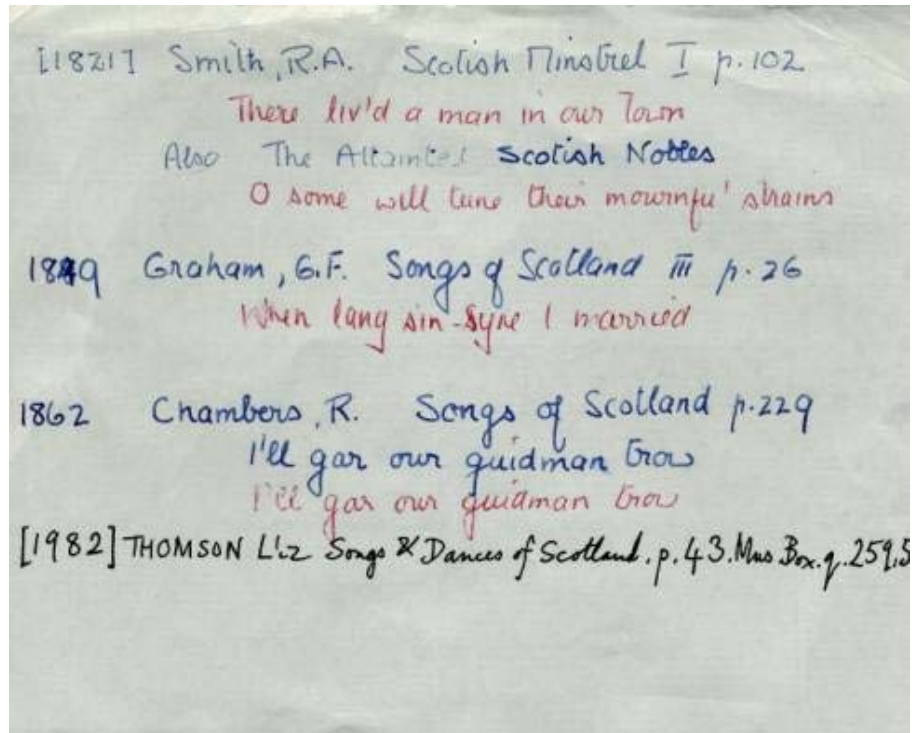 [1821] Smith, R.A. Scotish Minstrel I p.102
There liv'd a man in our Town
Also The Attainted Scotish Nobles
O some will tune their mournfu' strains
1849 Graham, G.F. Songs of Scotland III p.26
When lang sin-syne I married
1862 Chambers, R. Songs of Scotland p.229
I'll gar our guidman trow
I'll gar our guidman trow
[1982] THOMSON Liz Songs & Dances of Scotland. p.43. Mus.Box.q.259.5